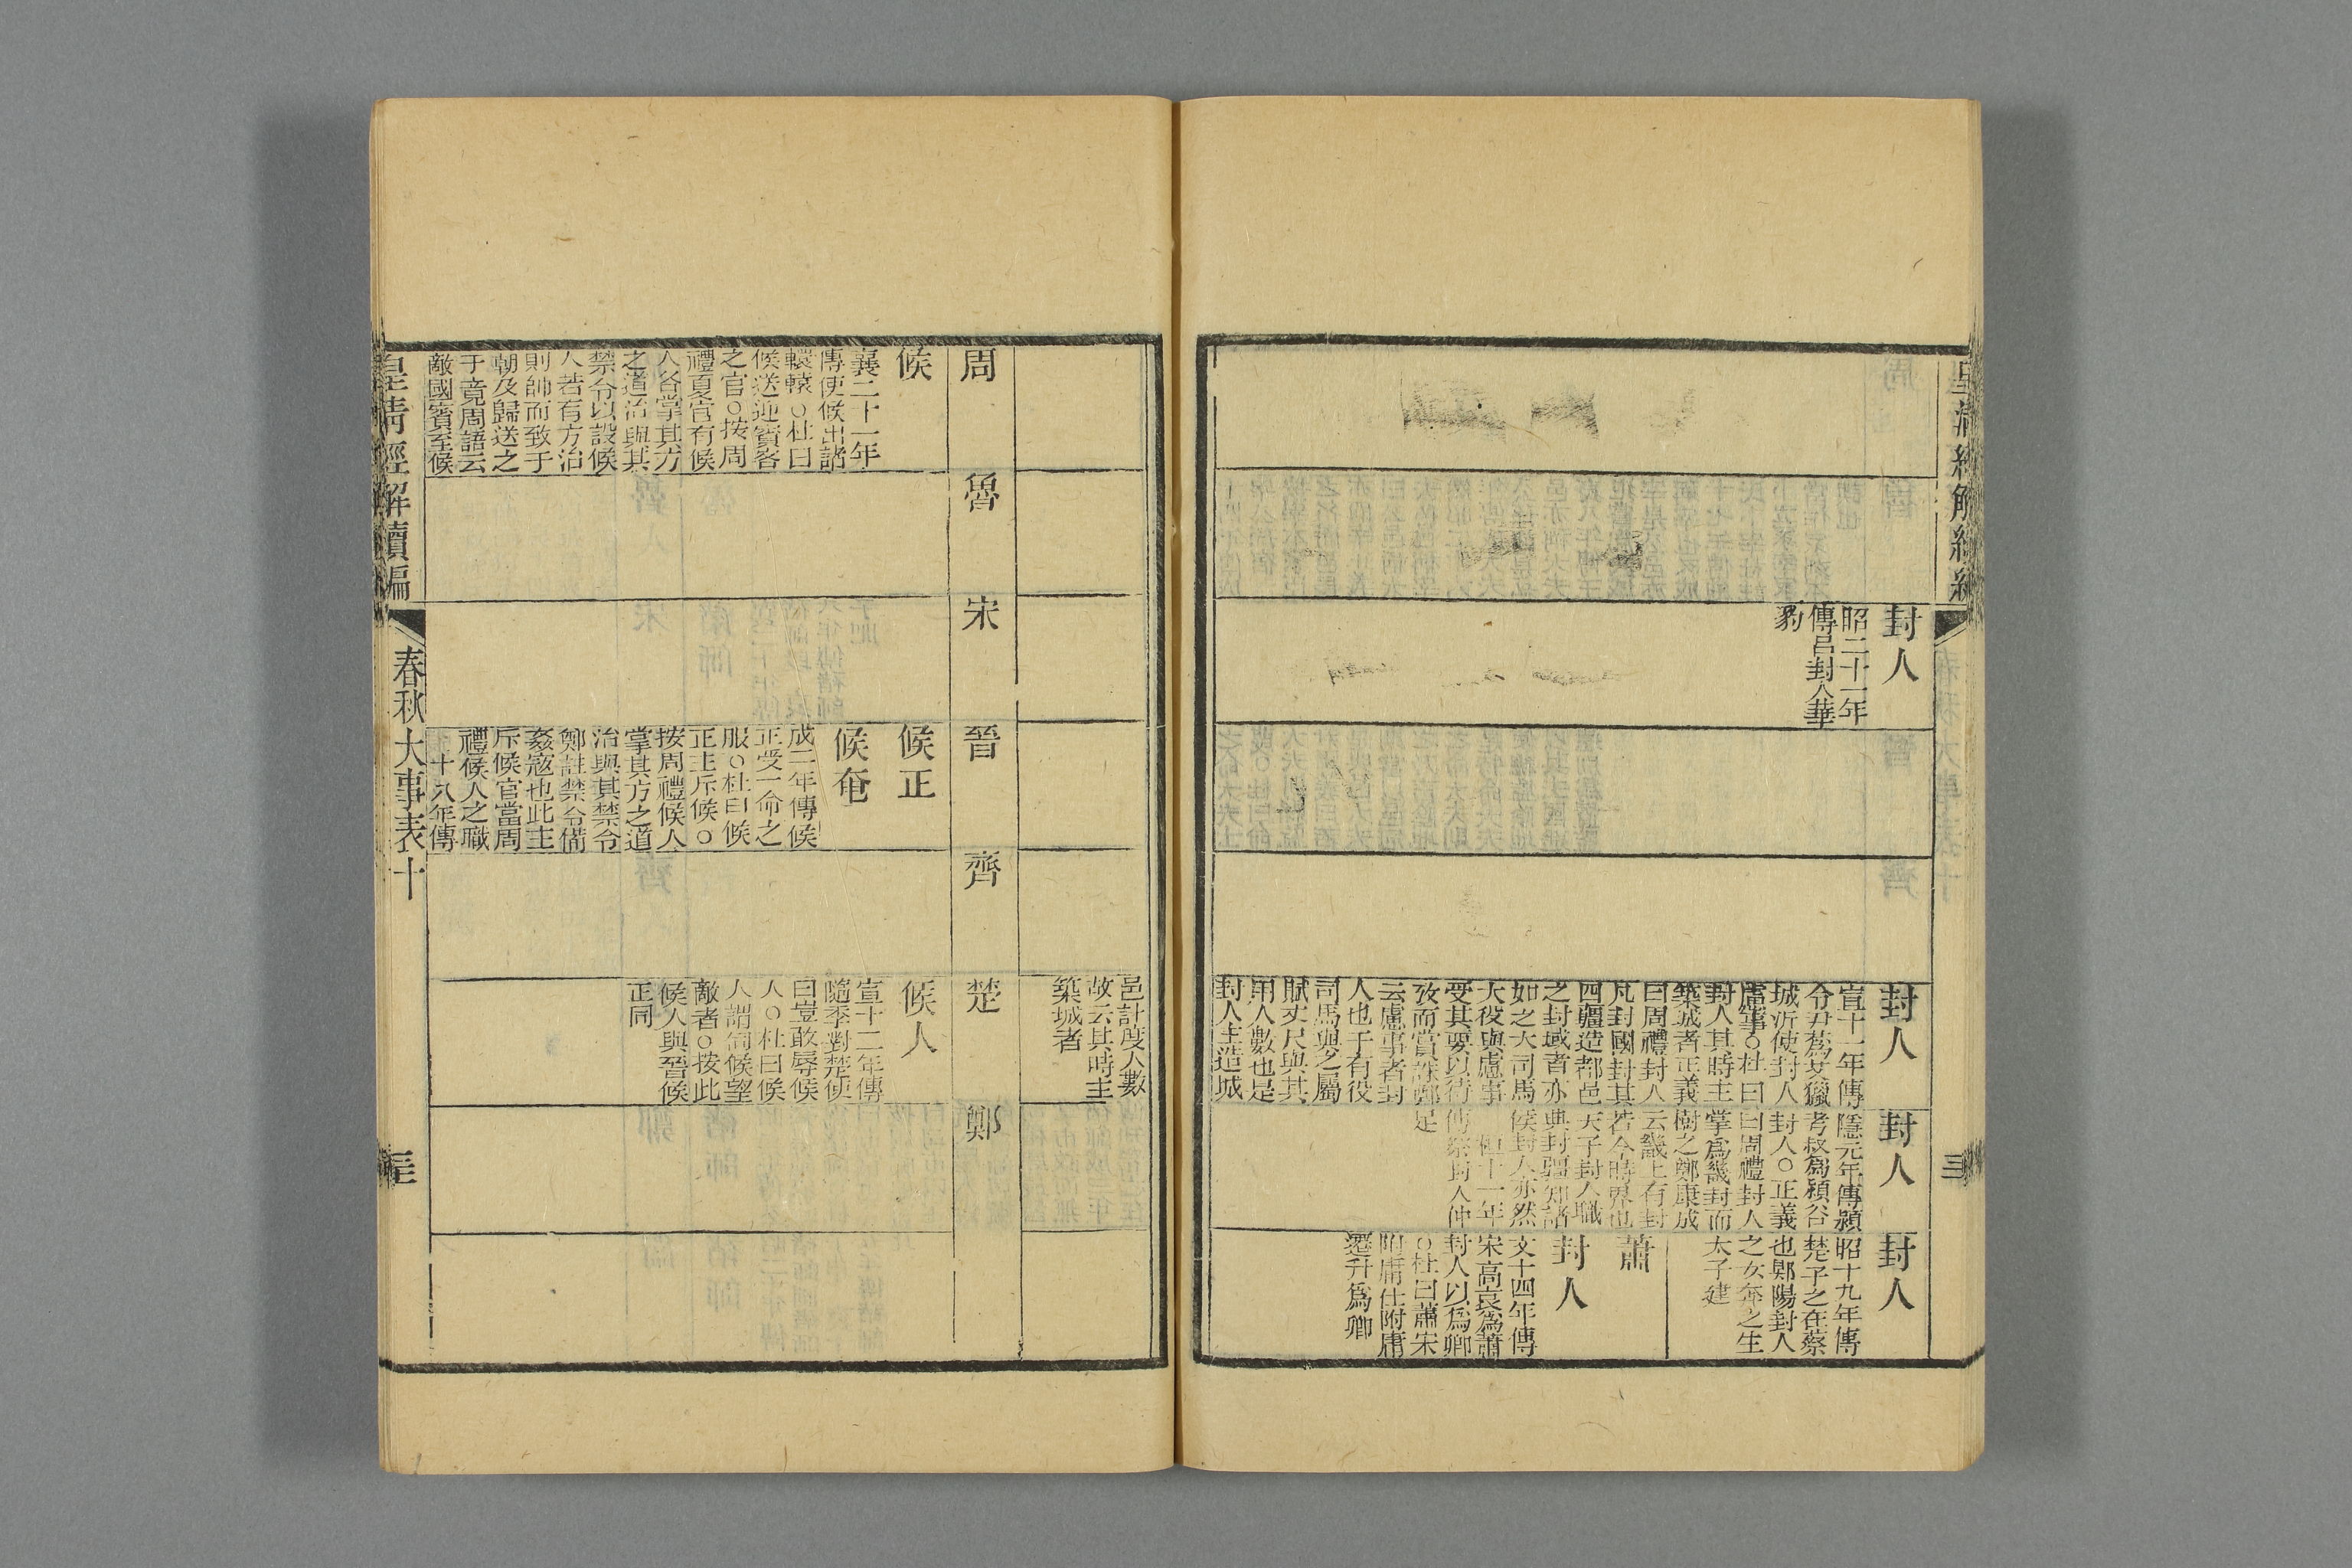 封人
昭二十一年
傳呂封人華
豹
封人
宣十一年傳
令尹蒍艾獵
城沂使封人
慮事○杜曰
封人其時主
築城者正義
曰周禮封人
凡封國封其
四疆造都邑
之封域者亦
如之大司馬
大役與慮事
受其要以待
攷而賞誅鄭
云慮事者封
人也于有役
司馬與之屬
賦丈尺與其
用人數也是
封人主造城
封人
隱元年傳潁
考叔爲潁谷
封人○正義
曰周禮封人
掌爲畿封而
樹之鄭康成
云畿上有封
若今時界也
天子封人職
典封疆知諸
侯封人亦然
桓十一年
傳祭封人仲
足
封人
昭十九年傳
楚子之在蔡
也郹陽封人
之女奔之生
太子建
蕭
封人
文十四年傳
宋高哀爲蕭
封人以爲卿
○杜曰蕭宋
附庸仕附庸
還升爲卿
三
邑計度人數
故云其時主
築城者
周
魯
宋
晉
齊
楚
鄭
候
襄二十一年
傳使候出諸
轘轅○杜曰
候送迎賓客
之官○按周
禮夏官有候
人各掌其方
之道治與其
禁令以設候
人若有方治
則帥而致于
朝及歸送之
于竟周語云
敵國賓至候
候正
候奄
成二年傳候
正受一命之
服○杜曰候
正主斥候○
按周禮候人
掌其方之道
治與其禁令
鄭註禁令備
姦寇也此主
斥候官當周
禮候人之職
十八年傳
候人
宣十二年傳
隨季對楚使
曰豈敢辱候
人○杜曰候
人謂伺候望
敵者○按此
候人與晉候
正同
皇清經解續編
春秋大事表十